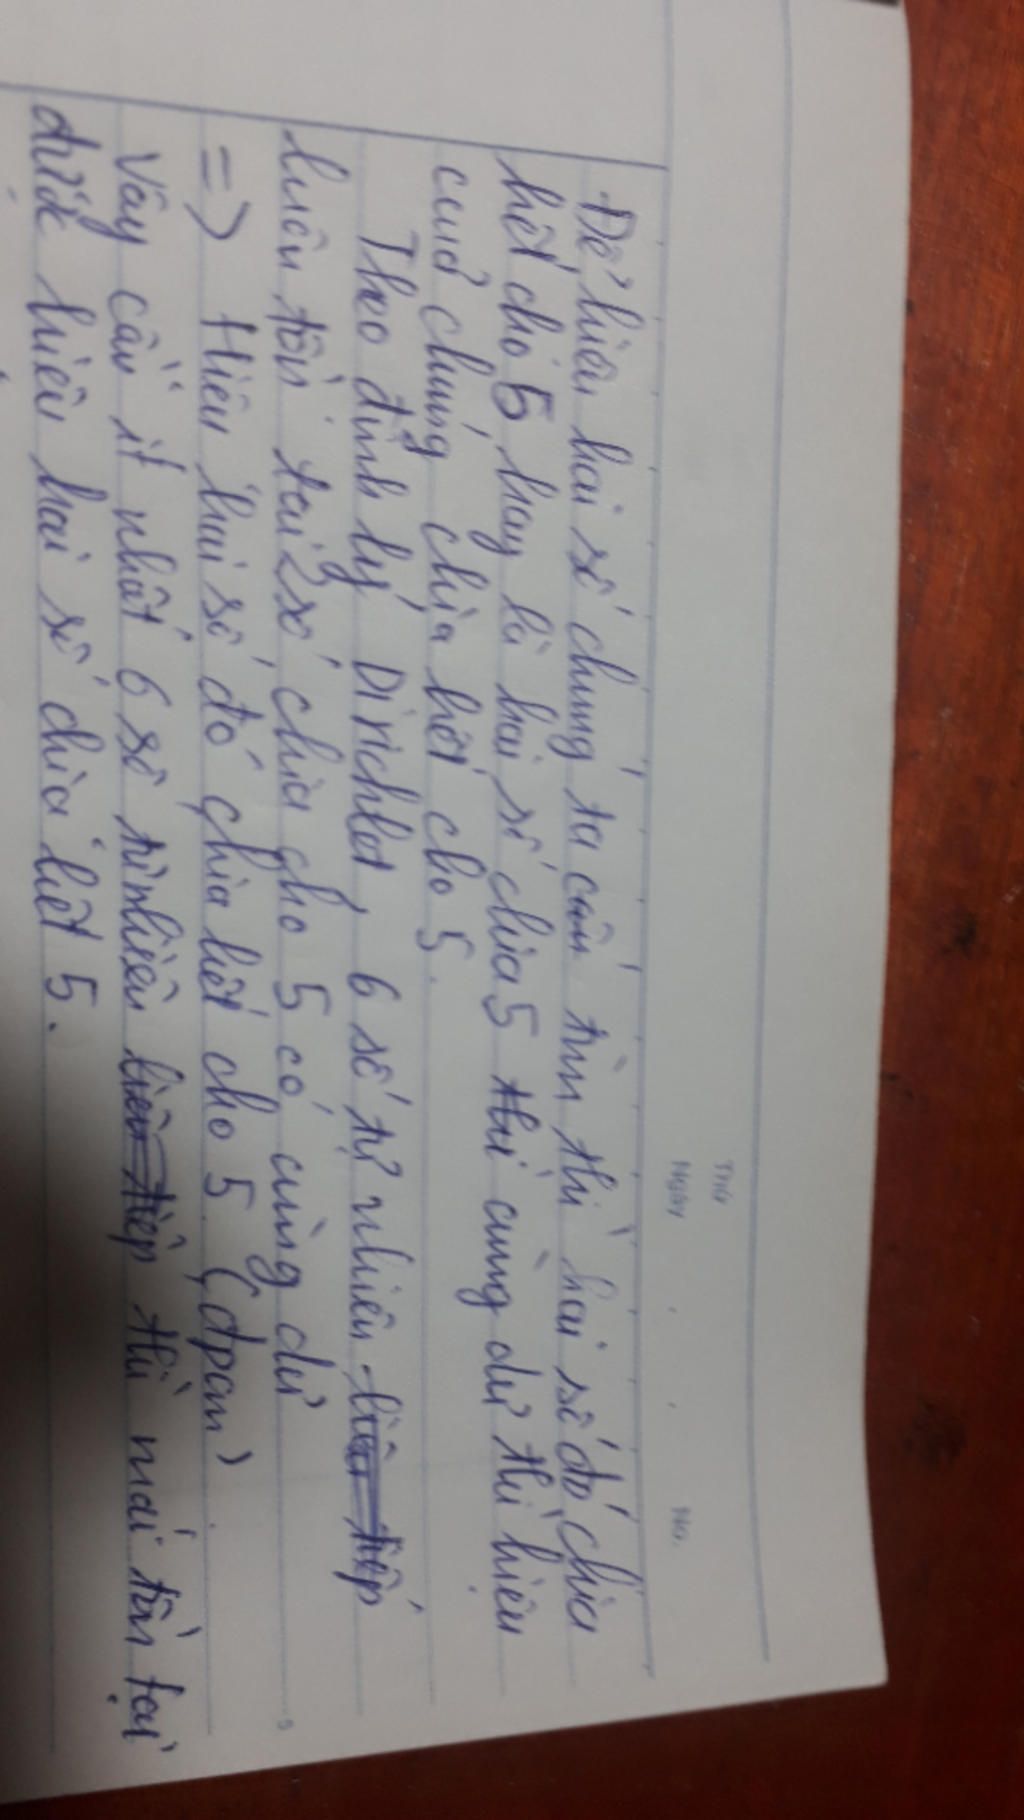 Thứ
Ngày
No.
Để hiệu hai số chúng ta cần tìm thì hai số đó chia
hết cho 5, hay là hai số chia 5 thì cùng dư thì hiệu
cuả chúng chia hết cho 5.
Theo định lý Dirichlet, 6 số tự nhiên liên tiếp
luôn tồn tại 2 số chia cho 5 có cùng dư
=> Hiệu hai số đó chia hết cho 5 (đpcm)
Vậy cần ít nhất 6 số tự nhiên liên tiếp thì mới tồn tại
được hiệu hai số chia hết 5.